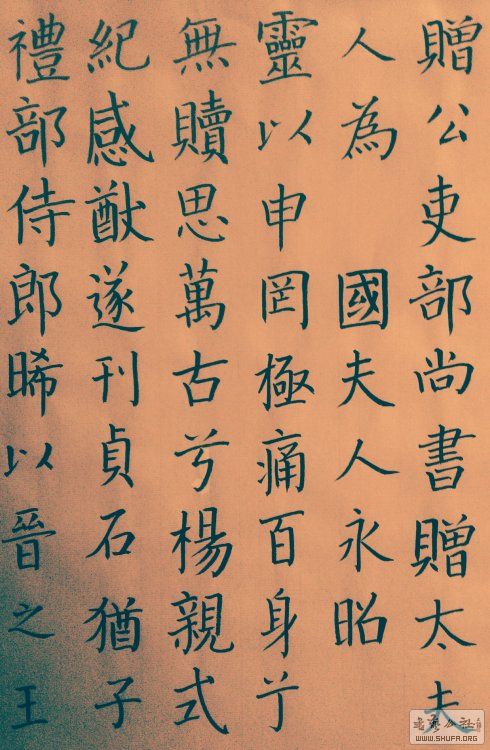 贈公吏部尚書贈太夫
人為 國夫人永昭
靈以申罔極痛百身兮
無贖思萬古兮楊親式
紀感猷遂刊貞石猶子
禮部侍郎晞以晉之王
WWW.SHUFA.ORG